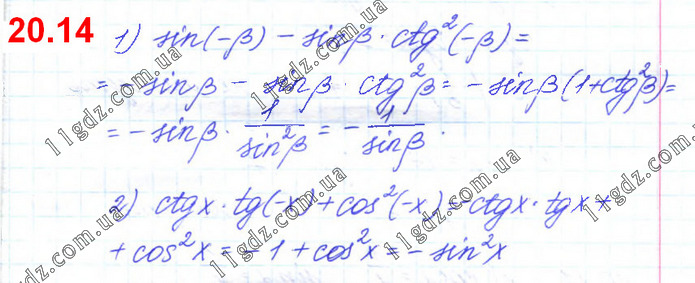 20.14
1) sin(-β) - sinβ · ctg²(-β) =
= -sinβ - sinβ · ctg²β = -sinβ(1+ctg²β)=
= -sinβ · 1/sin²β = - 1/sinβ.
2) ctgx · tg(-x) + cos²(-x) = -ctgx · tgx +
+ cos²x = -1 + cos²x = -sin²x
11gdz.com.ua
11gdz.com.ua
11gdz.com.ua
11gdz.com.ua
11gdz.com.ua
11gdz.com.ua